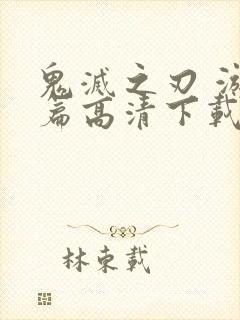 鬼滅之刃 游
篇高清下載
林東載